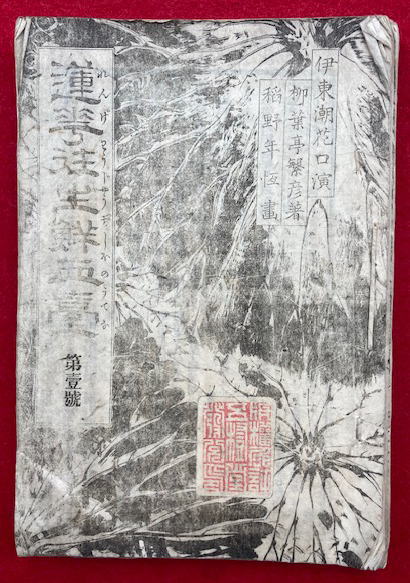 伊東潮花口演
柳葉亭繁彦著
稻野年恒畫
れんげわうじやうちしほのうてな
蓮華往生鮮血臺
第壹號